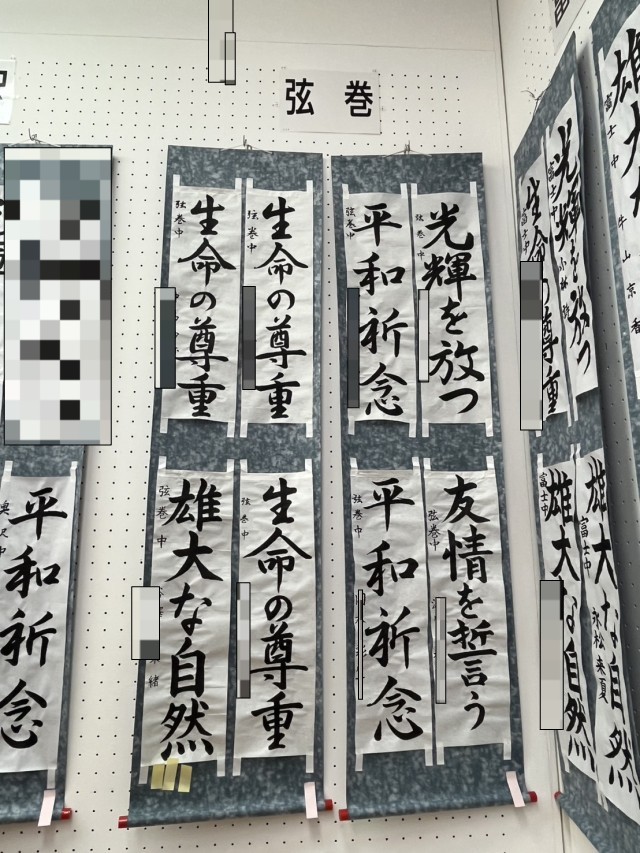 弦巻
光輝を放つ
弦巻中
平和祈念
弦巻中
生命の尊重
弦巻中
生命の尊重
弦巻中
友情を誓う
弦巻中
平和祈念
弦巻中
生命の尊重
弦巻中
雄大な自然
弦巻中
平和祈念
光輝を放つ
富士中
生命の尊重
富士中
雄大な自然
富士中
永松来夏
雄大な自然
富士中
雄大
富士中